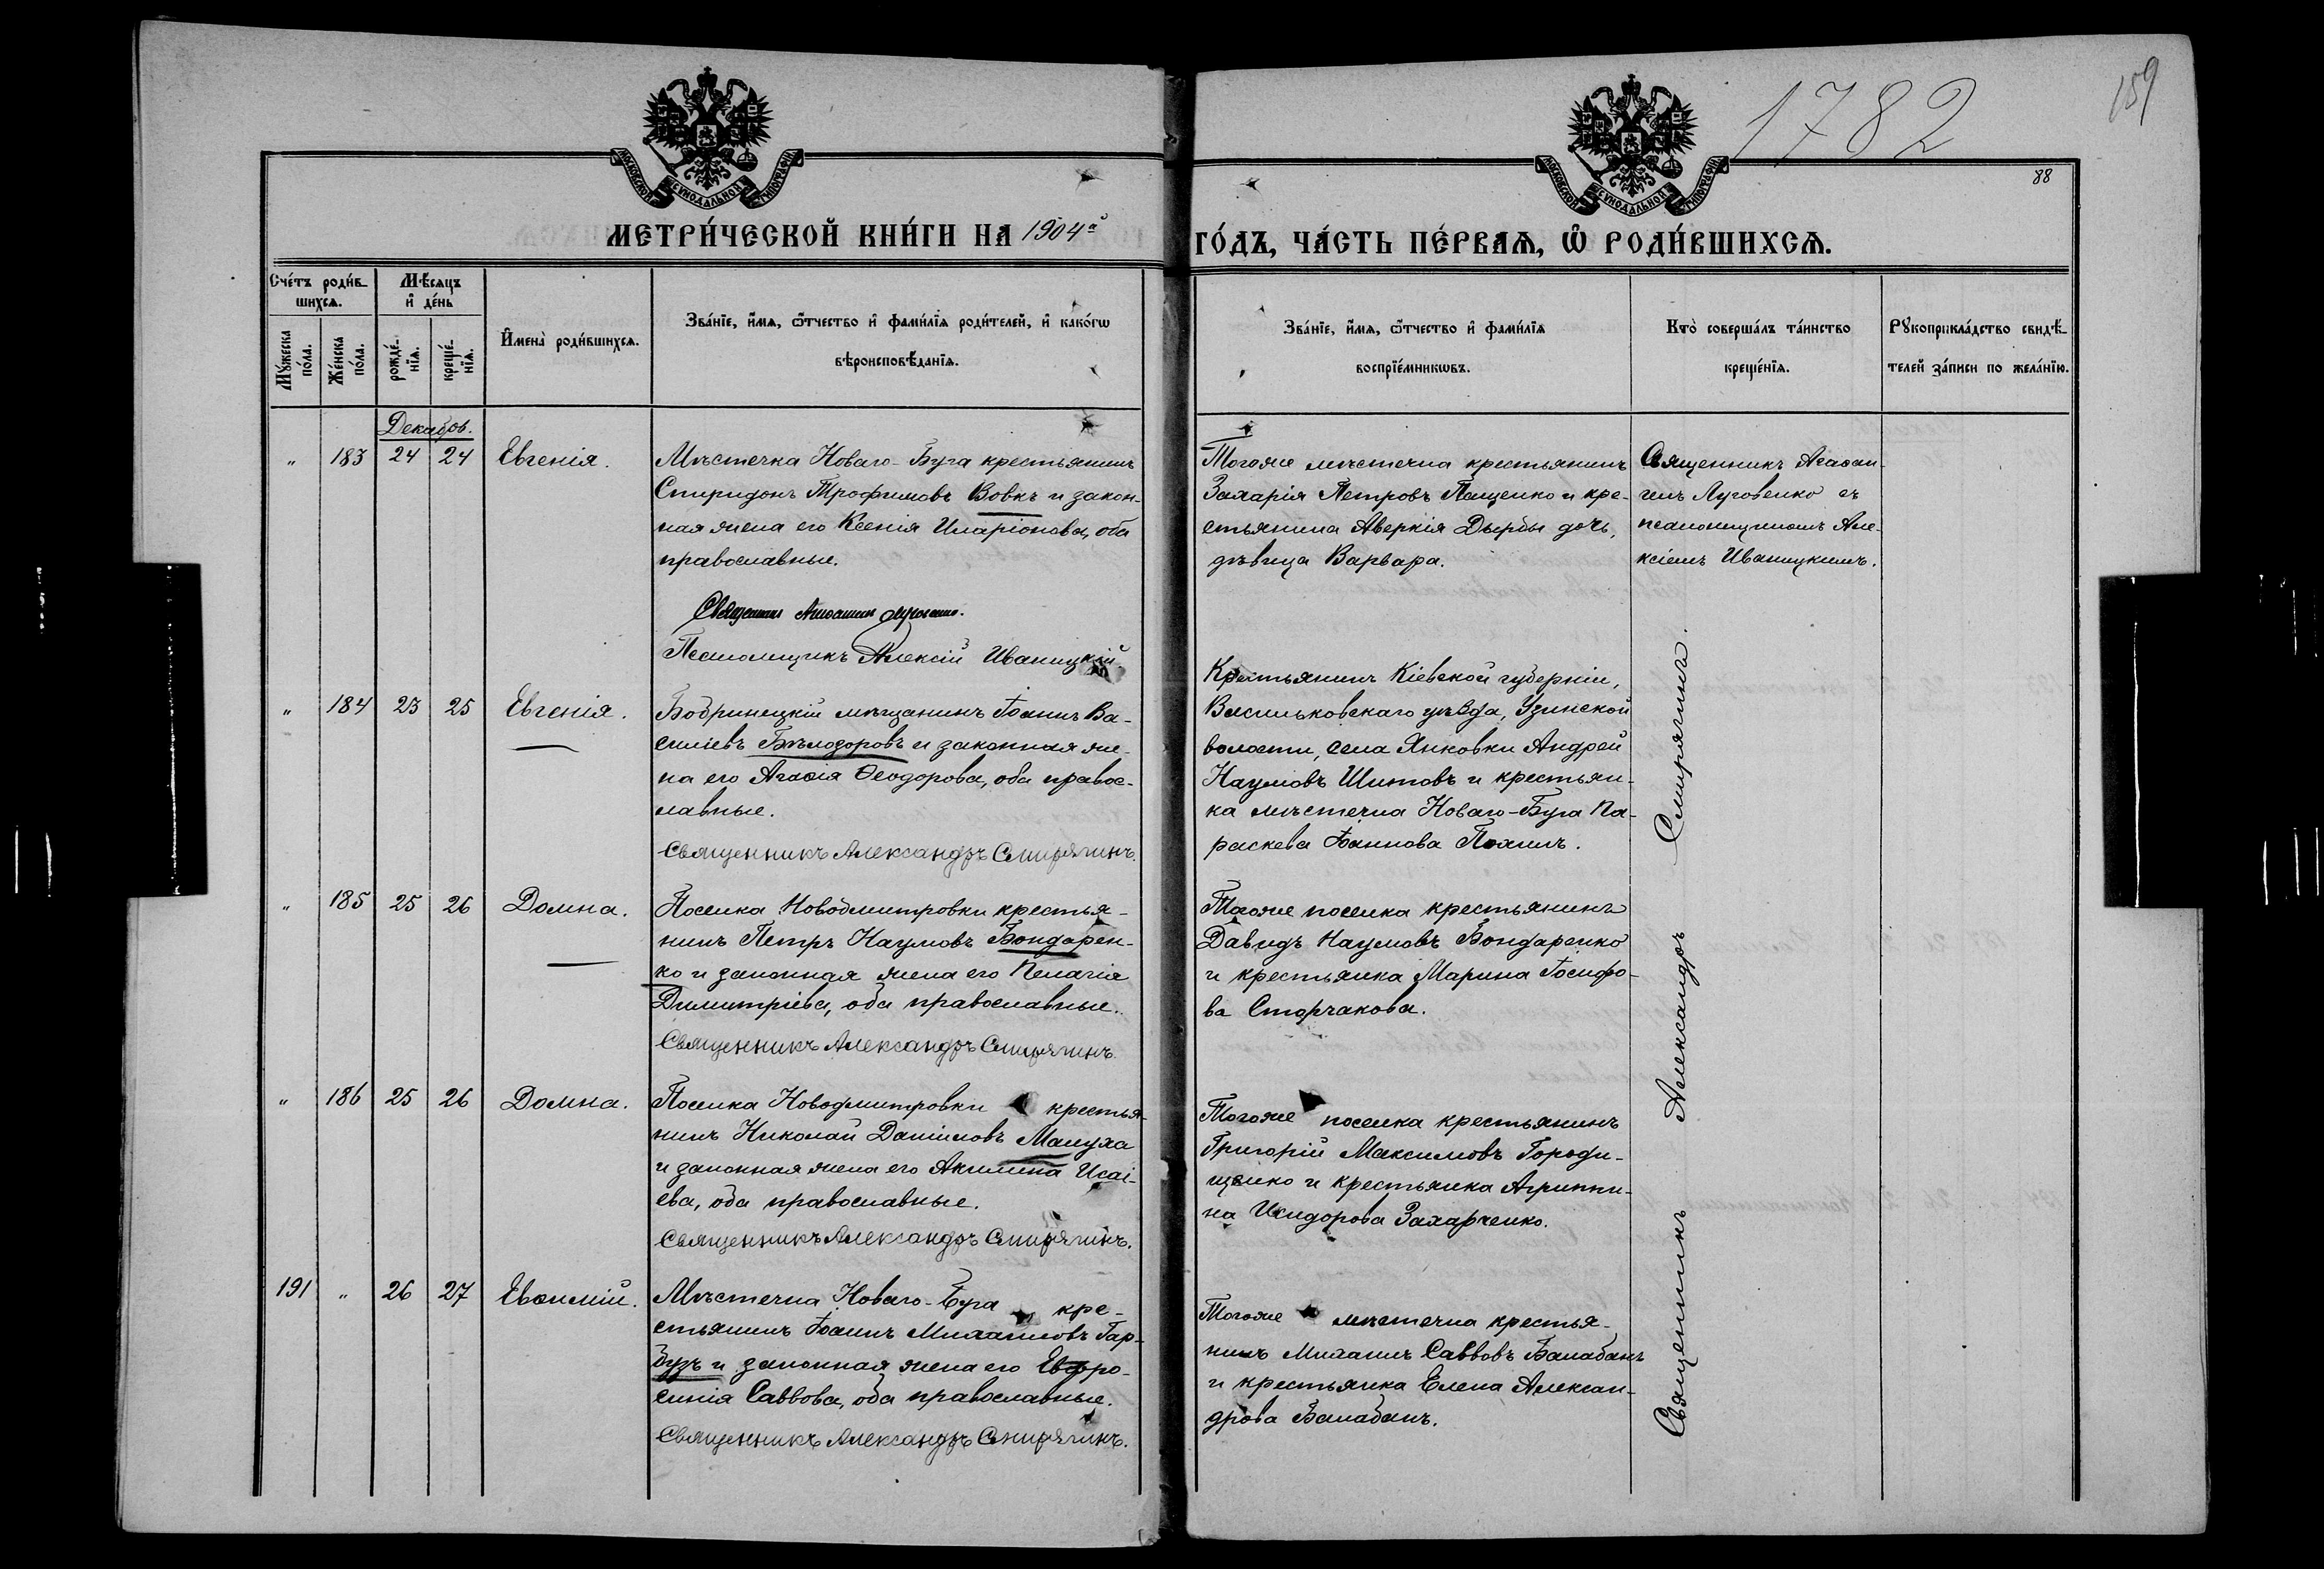 1782
159
88
МОСКОВСКОЙ СѴНОДАЛЬНОЙ ТИПОГРАФІИ
МОСКОВСКОЙ СѴНОДАЛЬНОЙ ТИПОГРАФІИ
МЕТРИ́ЧЕСКОЙ КНИ́ГИ НА 1904й
ГО́ДЪ, ЧА́СТЬ ПЕ́РВАѦ, Ѡ҆ РОДИ́ВШИХСѦ.
Сче́тъ роди́в-
шихсѧ.
Мꙋ́жеска по́ла.
Же́нска по́ла.
Мѣ́сѧцъ
и҆ де́нь
рожде́-
нїѧ.
креще́-
нїѧ.
И҆мена̀ роди́вшихсѧ.
Зва́нїе, и҆́мѧ, ѻ҆́тчество и҆ фами́лїѧ роди́телей, и҆ како́гѡ
вѣроисповѣ́данїѧ.
Зва́нїе, и҆́мѧ, ѻ҆́тчество и҆ фами́лїѧ
воспрїе́мникѡвъ.
Кто̀ соверша́лъ та́инство
креще́нїѧ.
Рꙋкоприкла́дство свидѣ́-
телей за́писи по жела́нїю.
Декабрь.
" 183 24 24 Евгенія.
Мѣстечка Новаго-Буга крестьянинъ
Спиридонъ Трофимовъ Вовкъ и закон-
ная жена его Ксенія Иларіонова, оба
православные.
Священникъ Агафангелъ Луговенко.
Псаломщикъ Алексій Иваницкій.
Тогоже мѣстечка крестьянинъ
Захарія Петровъ Пащенко и кре-
стьянина Аверкія Дырды дочь,
дѣвица Варвара.
Священникъ Агаѳан-
гелъ Луговенко съ
псаломщикомъ Але-
ксіемъ Иваницкимъ.
" 184 23 25 Евгенія.
Бобринецкій мѣщанинъ Іоаннъ Ва-
силіевъ Бѣлодоровъ и законная же-
на его Агаѳія Ѳеодорова, оба правос-
лавные.
Священникъ Александръ Смирягинъ.
Крестьянинъ Кіевской губерніи,
Васильковскаго уѣзда, Узинской
волости, села Янковки Андрей
Наумовъ Шитовъ и крестьян-
ка мѣстечка Новаго-Буга Па-
раскева Іоаннова Похилъ.
" 185 25 26 Домна.
Поселка Новодмитровки крестья-
нинъ Петръ Наумовъ Бондарен-
ко и законная жена его Пелагія
Димитріева, оба православные.
Священникъ Александръ Смирягинъ.
Тогоже поселка крестьянинъ
Давидъ Наумовъ Бондаренко
и крестьянка Марина Іосифо-
ва Старчакова.
" 186 25 26 Домна.
Поселка Новодмитровки крестья-
нинъ Николай Даніиловъ Мацуха
и законная жена его Акилина Исаі-
ева, оба православные.
Священникъ Александръ Смирягинъ.
Тогоже поселка крестьянинъ
Григорій Максимовъ Городи-
щенко и крестьянка Агриппи-
на Исидорова Захарченко.
191 " 26 27 Евѳимій.
Мѣстечка Новаго-Буга кре-
стьянинъ Іоаннъ Михаиловъ Гар-
бузъ и законная жена его Евфро-
синія Саввова, оба православные.
Священникъ Александръ Смирягинъ.
Тогоже мѣстечка крестья-
нинъ Михаилъ Саввовъ Балабанъ
и крестьянка Елена Алексан-
дрова Балабанъ.
Священникъ Александръ Смирягинъ.